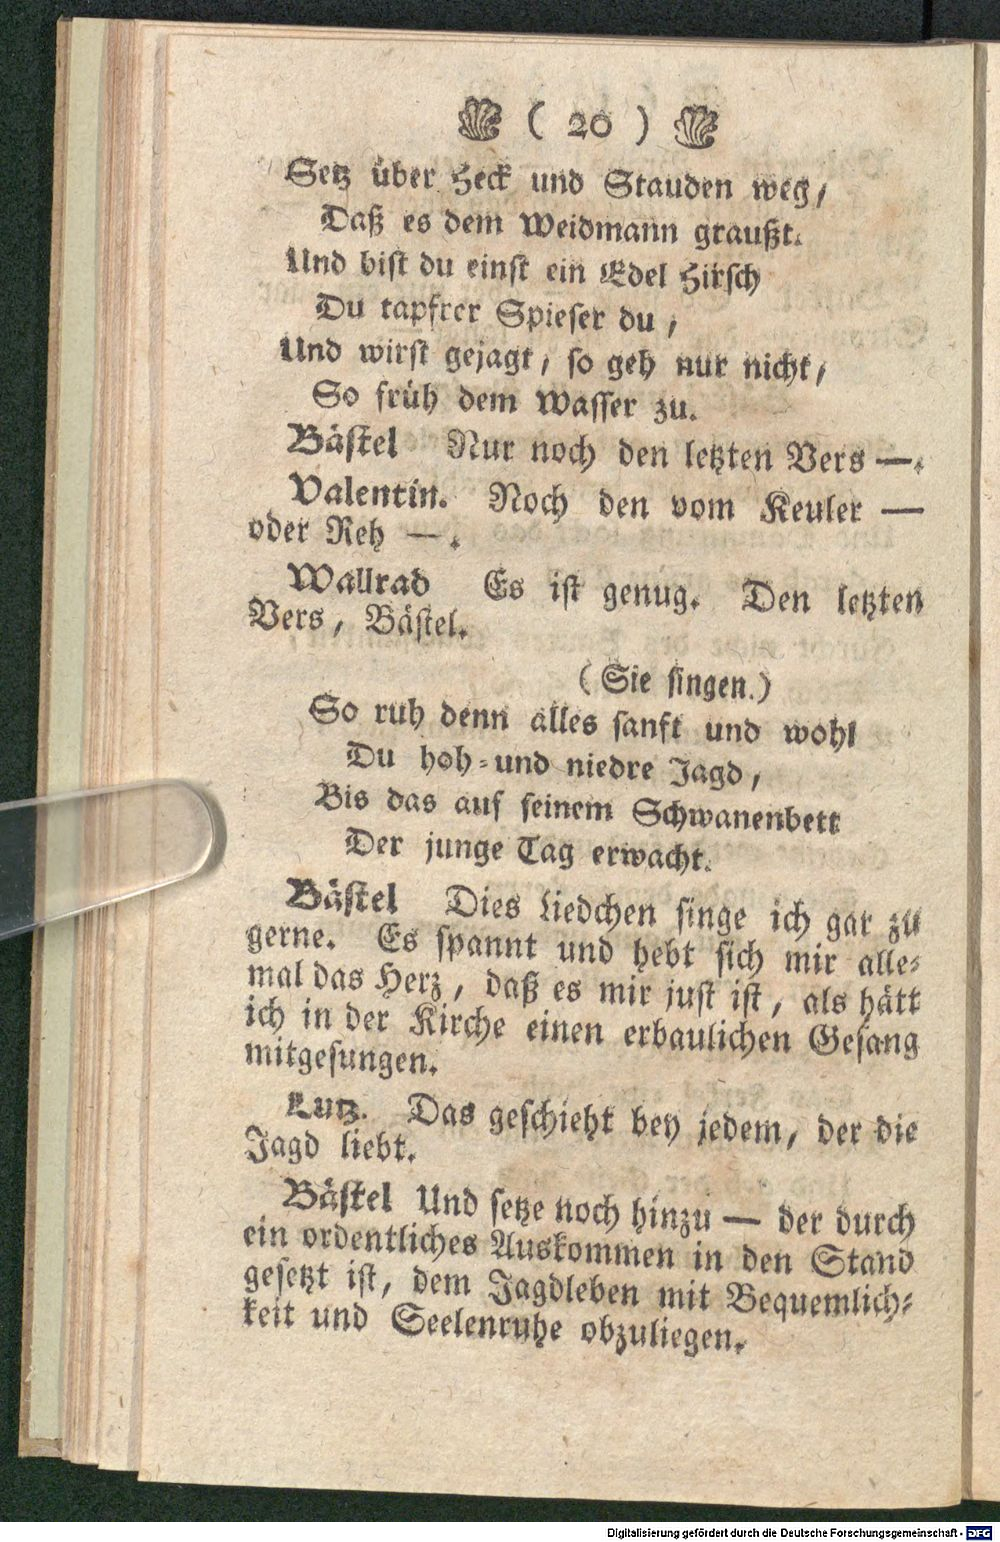 ( 20 )
Setz über Heck und Stauden weg,
Daß es dem Weidmann graußt.
Und bist du einst ein Edel Hirsch
Du tapfrer Spieser du,
Und wirst gejagt, so geh nur nicht,
So früh dem Wasser zu.
Bästel Nur noch den letzten Vers —.
Valentin. Noch den vom Keuler —
oder Reh —.
Wallrad Es ist genug. Den letzten
Vers, Bästel.
(Sie singen.)
So ruh denn alles sanft und wohl
Du hoh-und niedre Jagd,
Bis das auf seinem Schwanenbett
Der junge Tag erwacht.
Bästel Dies Liedchen singe ich gar zu
gerne. Es spannt und hebt sich mir alle-
mal das Herz, daß es mir just ist, als hätt
ich in der Kirche einen erbaulichen Gesang
mitgesungen.
Kutz. Das geschieht bey jedem, der die
Jagd liebt.
Bästel Und setze noch hinzu — der durch
ein ordentliches Auskommen in den Stand
gesetzt ist, dem Jagdleben mit Bequemlich-
keit und Seelenruhe obzuliegen.
Digitalisierung gefördert durch die Deutsche Forschungsgemeinschaft - DFG